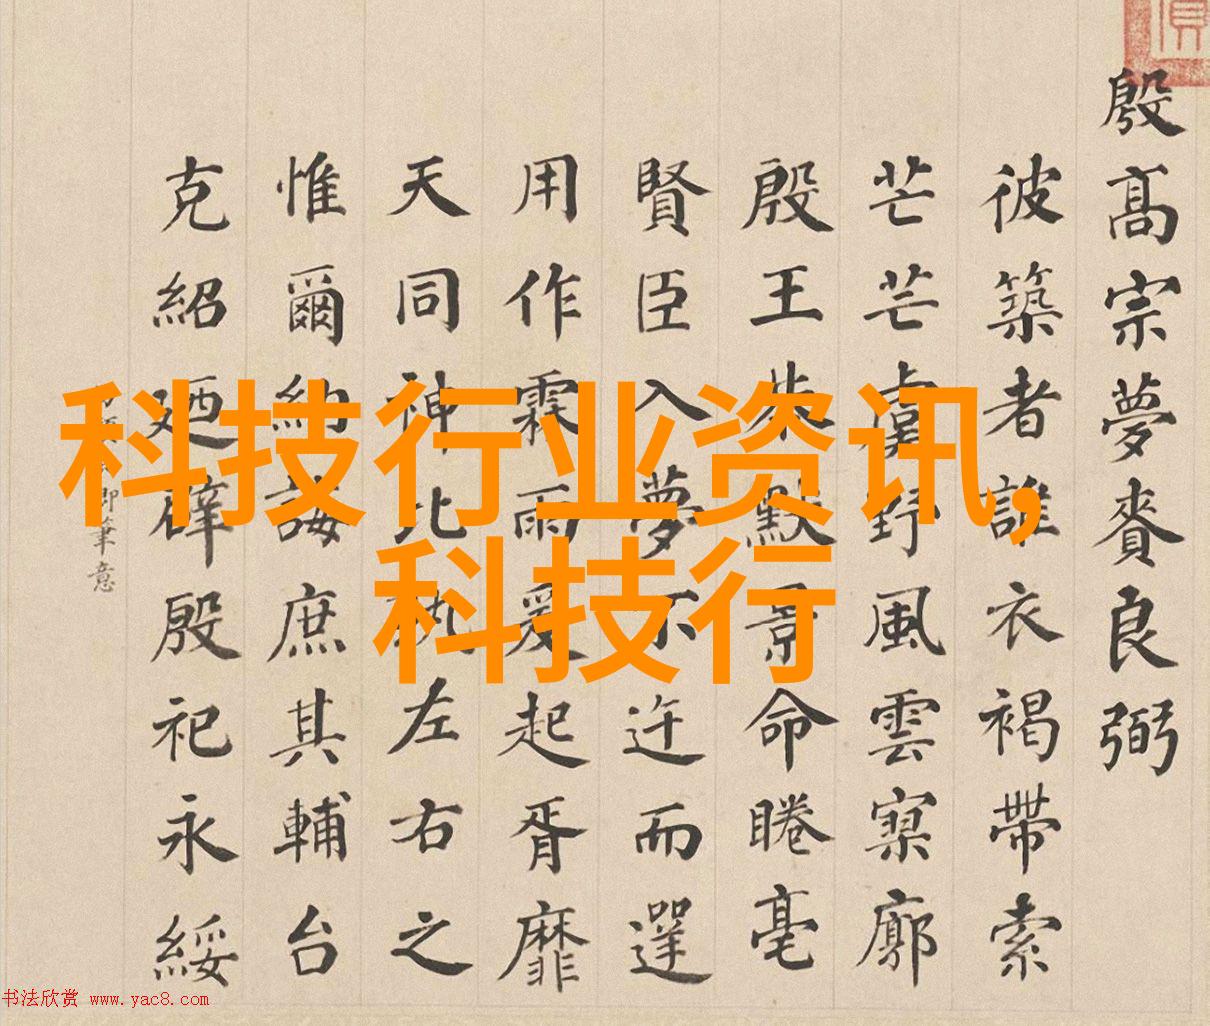 殷髙宗夢賚良弼
彼築者誰衣褐帶索
芒芒虞野風雲寥廓
殷王恭默景命睠亳
賢臣入夢不迕而遌
用作霖雨爰起胥靡
天同神比左右之
惟爾納誨庶其輔台
克紹廼辟殷祀永綏
筆意
科技行业资讯,
科技行
书法欣赏 www.yac8.com